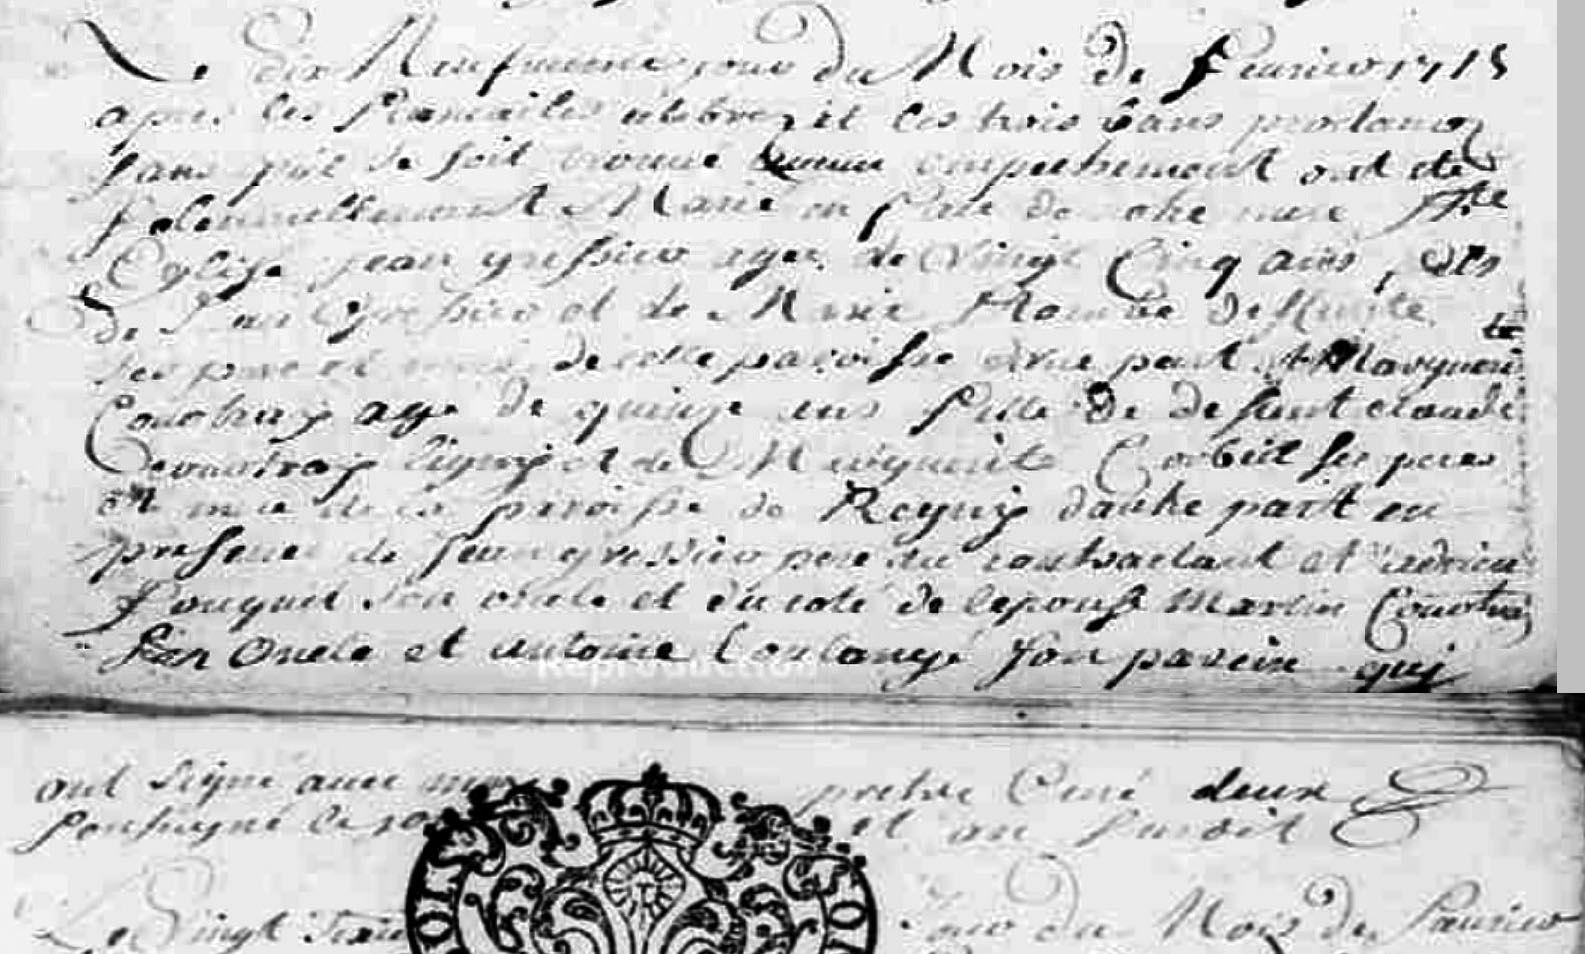 Le dix Neufvieme jour du Mois de fevrier 1715
apres les fiancailles celebrez et les trois bans proclamez
sans qu'il se soit trouvé aucun empechement ont ete
solennellement Marié en face de notre mere Ste
Eglise jean gressier agé de Vingt Cinq ans, fils
de Jean gressier et de Marie deffunte
ses pere et mere de cette paroisse d'une part et Marguerite
Courtray agé de quinze ans fille de defunt claude
Courtray et de Marguerite Corbeil ses peres
et mere de la paroisse de Regny dautre part en
presence de Jean gressier pere du contractant et adrien
fouquet son oncle et du coté de lepouse Martin Courtray
son Oncle et antoine Coulangé son parein qui
ont signé avec moy prêtre Curé deux
soussigné les jour et an susdit
Le Vingt jour du Mois de faurier